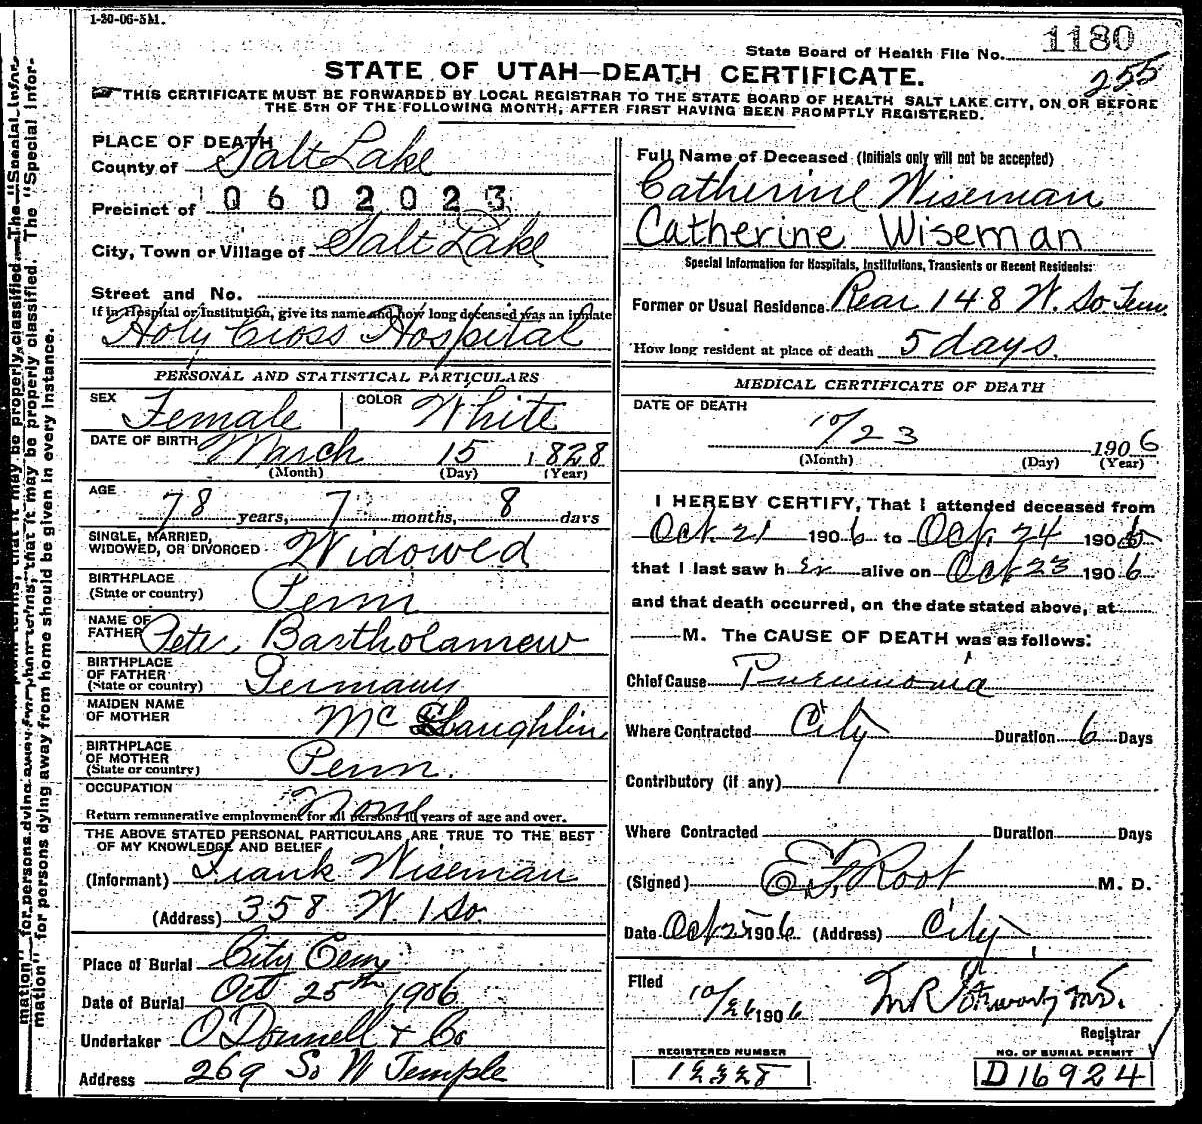 1-20-06-5M.
State Board of Health File No. 1180
255
STATE OF UTAH—DEATH CERTIFICATE.
THIS CERTIFICATE MUST BE FORWARDED BY LOCAL REGISTRAR TO THE STATE BOARD OF HEALTH SALT LAKE CITY, ON OR BEFORE
THE 5TH OF THE FOLLOWING MONTH, AFTER FIRST HAVING BEEN PROMPTLY REGISTERED.
PLACE OF DEATH
County of Salt Lake
Precinct of 0602023
City, Town or Village of Salt Lake
Street and No.
If in Hospital or Institution, give its name and how long deceased was an inmate
Holy Cross Hospital
PERSONAL AND STATISTICAL PARTICULARS
SEX Female COLOR White
DATE OF BIRTH March 15 1828
(Month) (Day) (Year)
AGE
78 years, 7 months, 8 days
SINGLE, MARRIED,
WIDOWED, OR DIVORCED Widowed
BIRTHPLACE
(State or country) Penn
NAME OF
FATHER Peter Bartholamew
BIRTHPLACE
OF FATHER
(State or country) Germany
MAIDEN NAME
OF MOTHER McSlaughlin
BIRTHPLACE
OF MOTHER
(State or country) Penn.
OCCUPATION
None
Return remunerative employment for all persons 10 years of age and over.
THE ABOVE STATED PERSONAL PARTICULARS ARE TRUE TO THE BEST
OF MY KNOWLEDGE AND BELIEF
(Informant) Frank Wiseman
(Address) 358 W. 1 So.
Place of Burial City Cem
Date of Burial Oct 25th 1906
Undertaker O'Donnell & Co
Address 269 So W Temple
Full Name of Deceased (Initials only will not be accepted)
Catherine Wiseman
Catherine Wiseman
Special Information for Hospitals, Institutions, Transients or Recent Residents:
Former or Usual Residence Rear 148 W. So Tem.
How long resident at place of death 5 days.
MEDICAL CERTIFICATE OF DEATH
DATE OF DEATH
10/23 1906
(Month) (Day) (Year)
I HEREBY CERTIFY, That I attended deceased from
Oct. 21 1906 to Oct. 24 1906
that I last saw her alive on Oct 23 1906
and that death occurred, on the date stated above, at
M. The CAUSE OF DEATH was as follows:
Chief Cause Pneumonia
Where Contracted City Duration 6 Days
Contributory (if any)
Where Contracted Duration Days
(Signed) E.F. Root M. D.
Date Oct 25 1906 (Address) City
Filed 10/26 1906
Registrar
REGISTERED NUMBER NO. OF BURIAL PERMIT
D16924
mation" for persons dying away from home should be given in every instance.